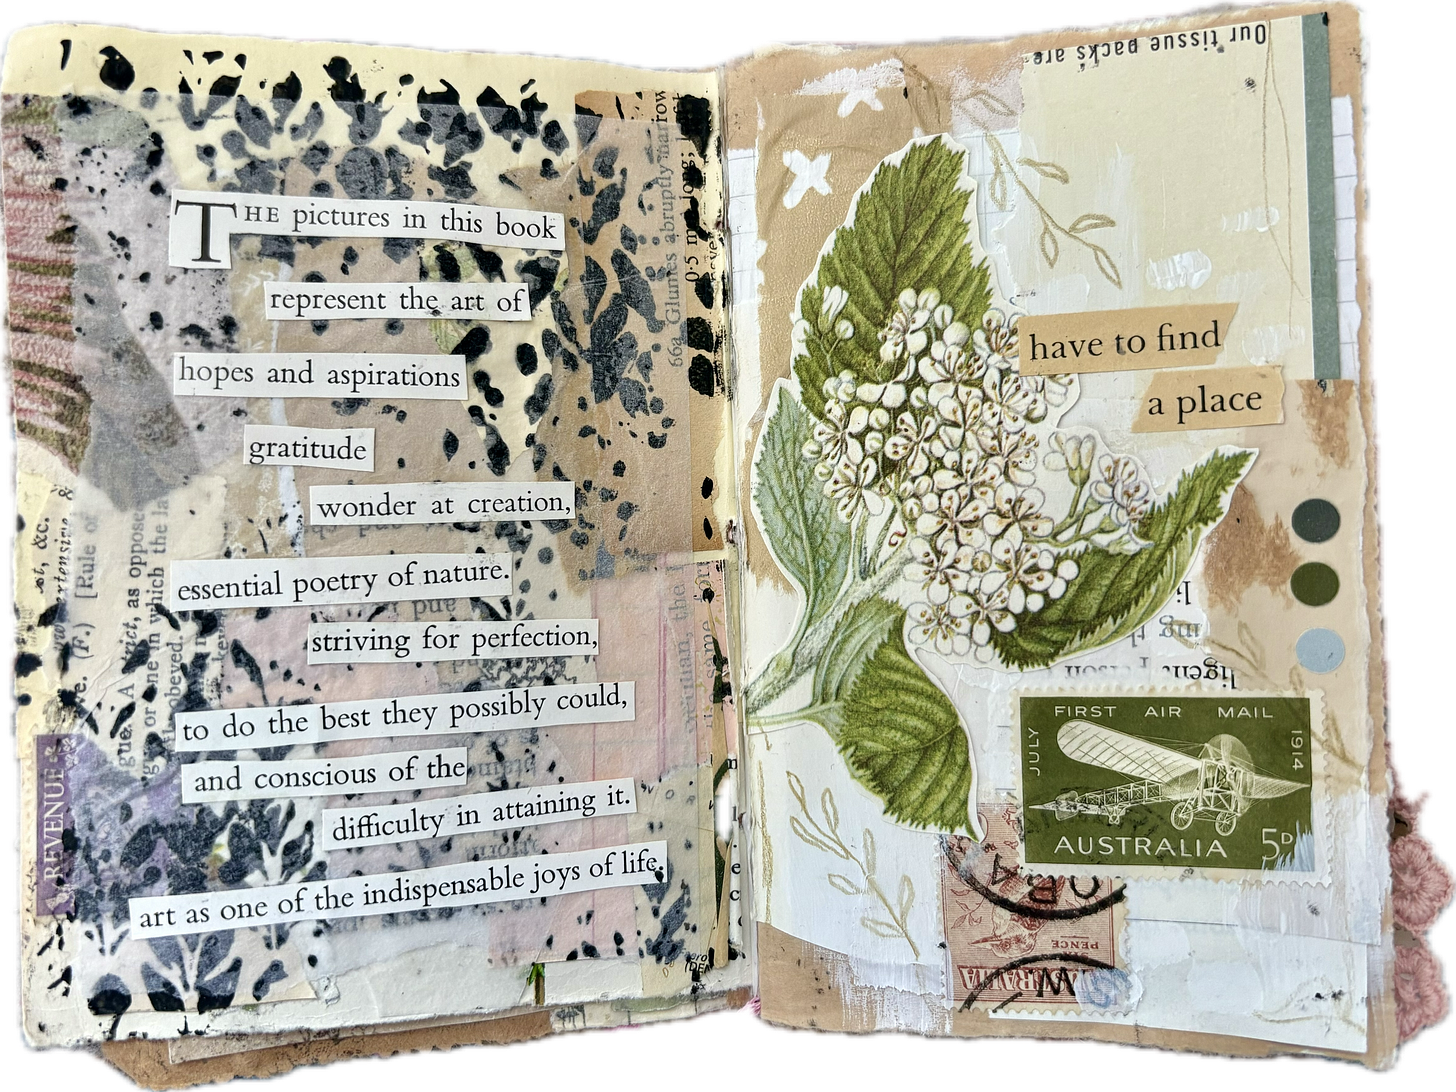 THE pictures in this book
represent the art of
hopes and aspirations
gratitude
wonder at creation,
essential poetry of nature.
striving for perfection,
to do the best they possibly could,
and conscious of the
difficulty in attaining it.
art as one of the indispensable joys of life.
REVENUE
&c.
[Rule of
(F.)
as oppose
or one in which the la
obeyed.
66a Glumes abruptly narrow
0·5 m long;
Our tissue packs are
have to find
a place
FIRST AIR MAIL
JULY
1914
AUSTRALIA
5D
PENCE
AUSTRALIA